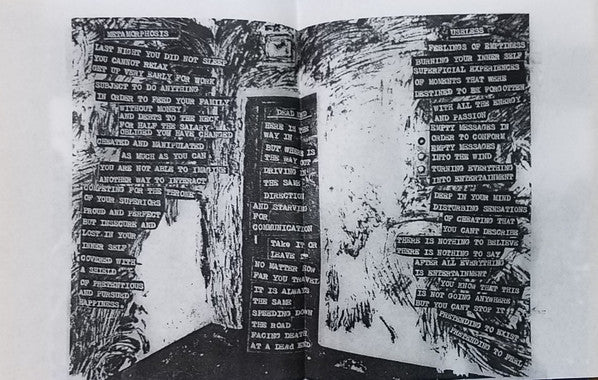 METAMORPHOSIS
LAST NIGHT YOU DID NOT SLEEP
YOU CANNOT RELAX
GET UP VERY EARLY FOR WORK
SUBJECT TO DO ANYTHING
IN ORDER TO FEED YOUR FAMILY
WITHOUT MONEY
AND DEBTS TO THE NECK
FOR HALF THE SALARY
OBLIGED YOU HAVE CHANGED
CHEATED AND MANIPULATED
AS MUCH AS YOU CAN
YOU ARE NOT ABLE TO IMAGINE
ANOTHER WAY TO INTERACT
COMPETING FOR THE THRONE
OF YOUR SUPERIORS
PROUD AND PERFECT
BUT INSECURE AND
LOST IN YOUR
INNER SELF
COVERED WITH
A SHIELD
OF PRETENTIOUS
AND PURSUED
HAPPINESS.
DEAD END
HERE IS THE
WAY IN
BUT WHERE IS
THE WAY OUT
DRIVING IN
THE SAME
DIRECTION
AND STARVING
FOR
COMMUNICATION
TAKE IT OR
LEAVE IT
NO MATTER HOW
FAR YOU TRAVEL
IT IS ALWAYS
THE SAME
SPEEDING DOWN
THE ROAD
FACING DEATH
AT A DEAD END
USELESS
FEELINGS OF EMPTINESS
BURNING YOUR INNER SELF
SUPERFICIAL EXPERIENCES
OF MOMENTS THAT WERE
DESTINED TO BE FORGOTTEN
WITH ALL THE ENERGY
AND PASSION
EMPTY MESSAGES IN
ORDER TO CONFORM
EMPTY MESSAGES
INTO THE WIND
TURNING EVERYTHING
INTO ENTERTAINMENT
DEEP IN YOUR MIND
DISTURBING SENSATIONS
OF CHEATING THAT
YOU CANT DESCRIBE
THERE IS NOTHING TO BELIEVE
THERE IS NOTHING TO SAY
AFTER ALL EVERYTHING
IS ENTERTAINMENT
YOU KNOW THAT THIS
IS NOT GOING ANYWHERE
BUT YOU CAN'T STOP IT
PRETENDING TO EXIST
PRETENDING TO